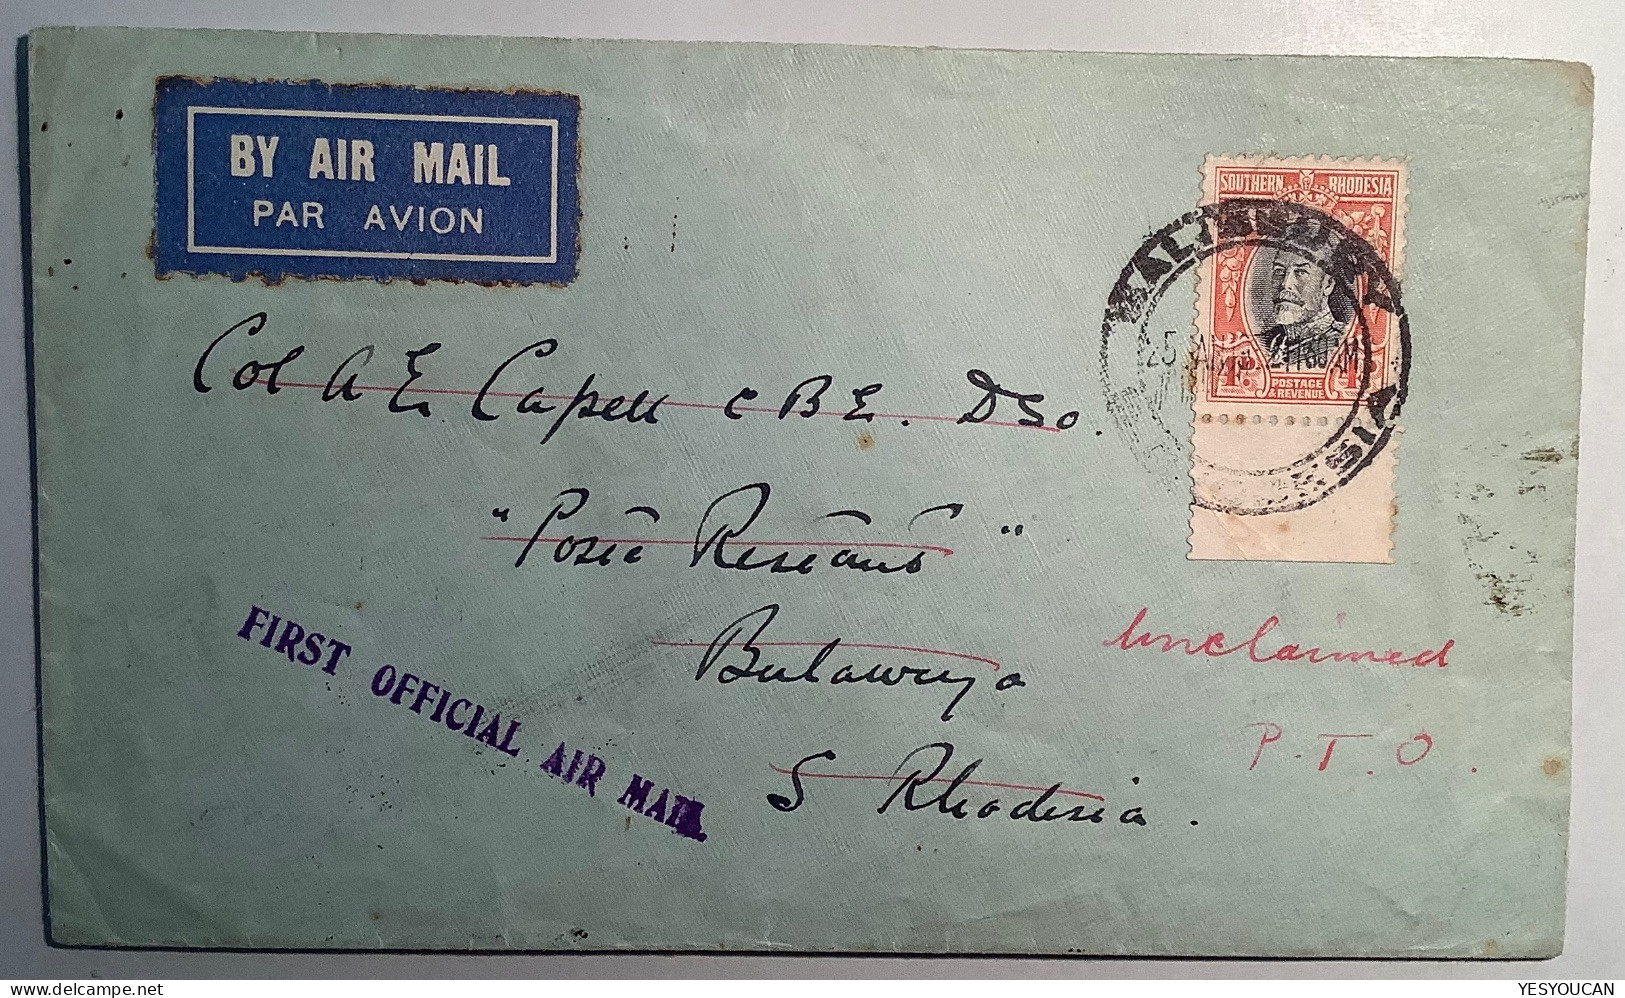 BY AIR MAIL
PAR AVION
SOUTHERN RHODESIA
4D. POSTAGE & REVENUE 4D.
25 11 30 AM
Col A E Capell C B E. D S O.
"Poste Restante"
Bulawayo
S Rhodesia.
FIRST OFFICIAL AIR MAIL.
Unclaimed
P.T.O.
YESYOUCAN